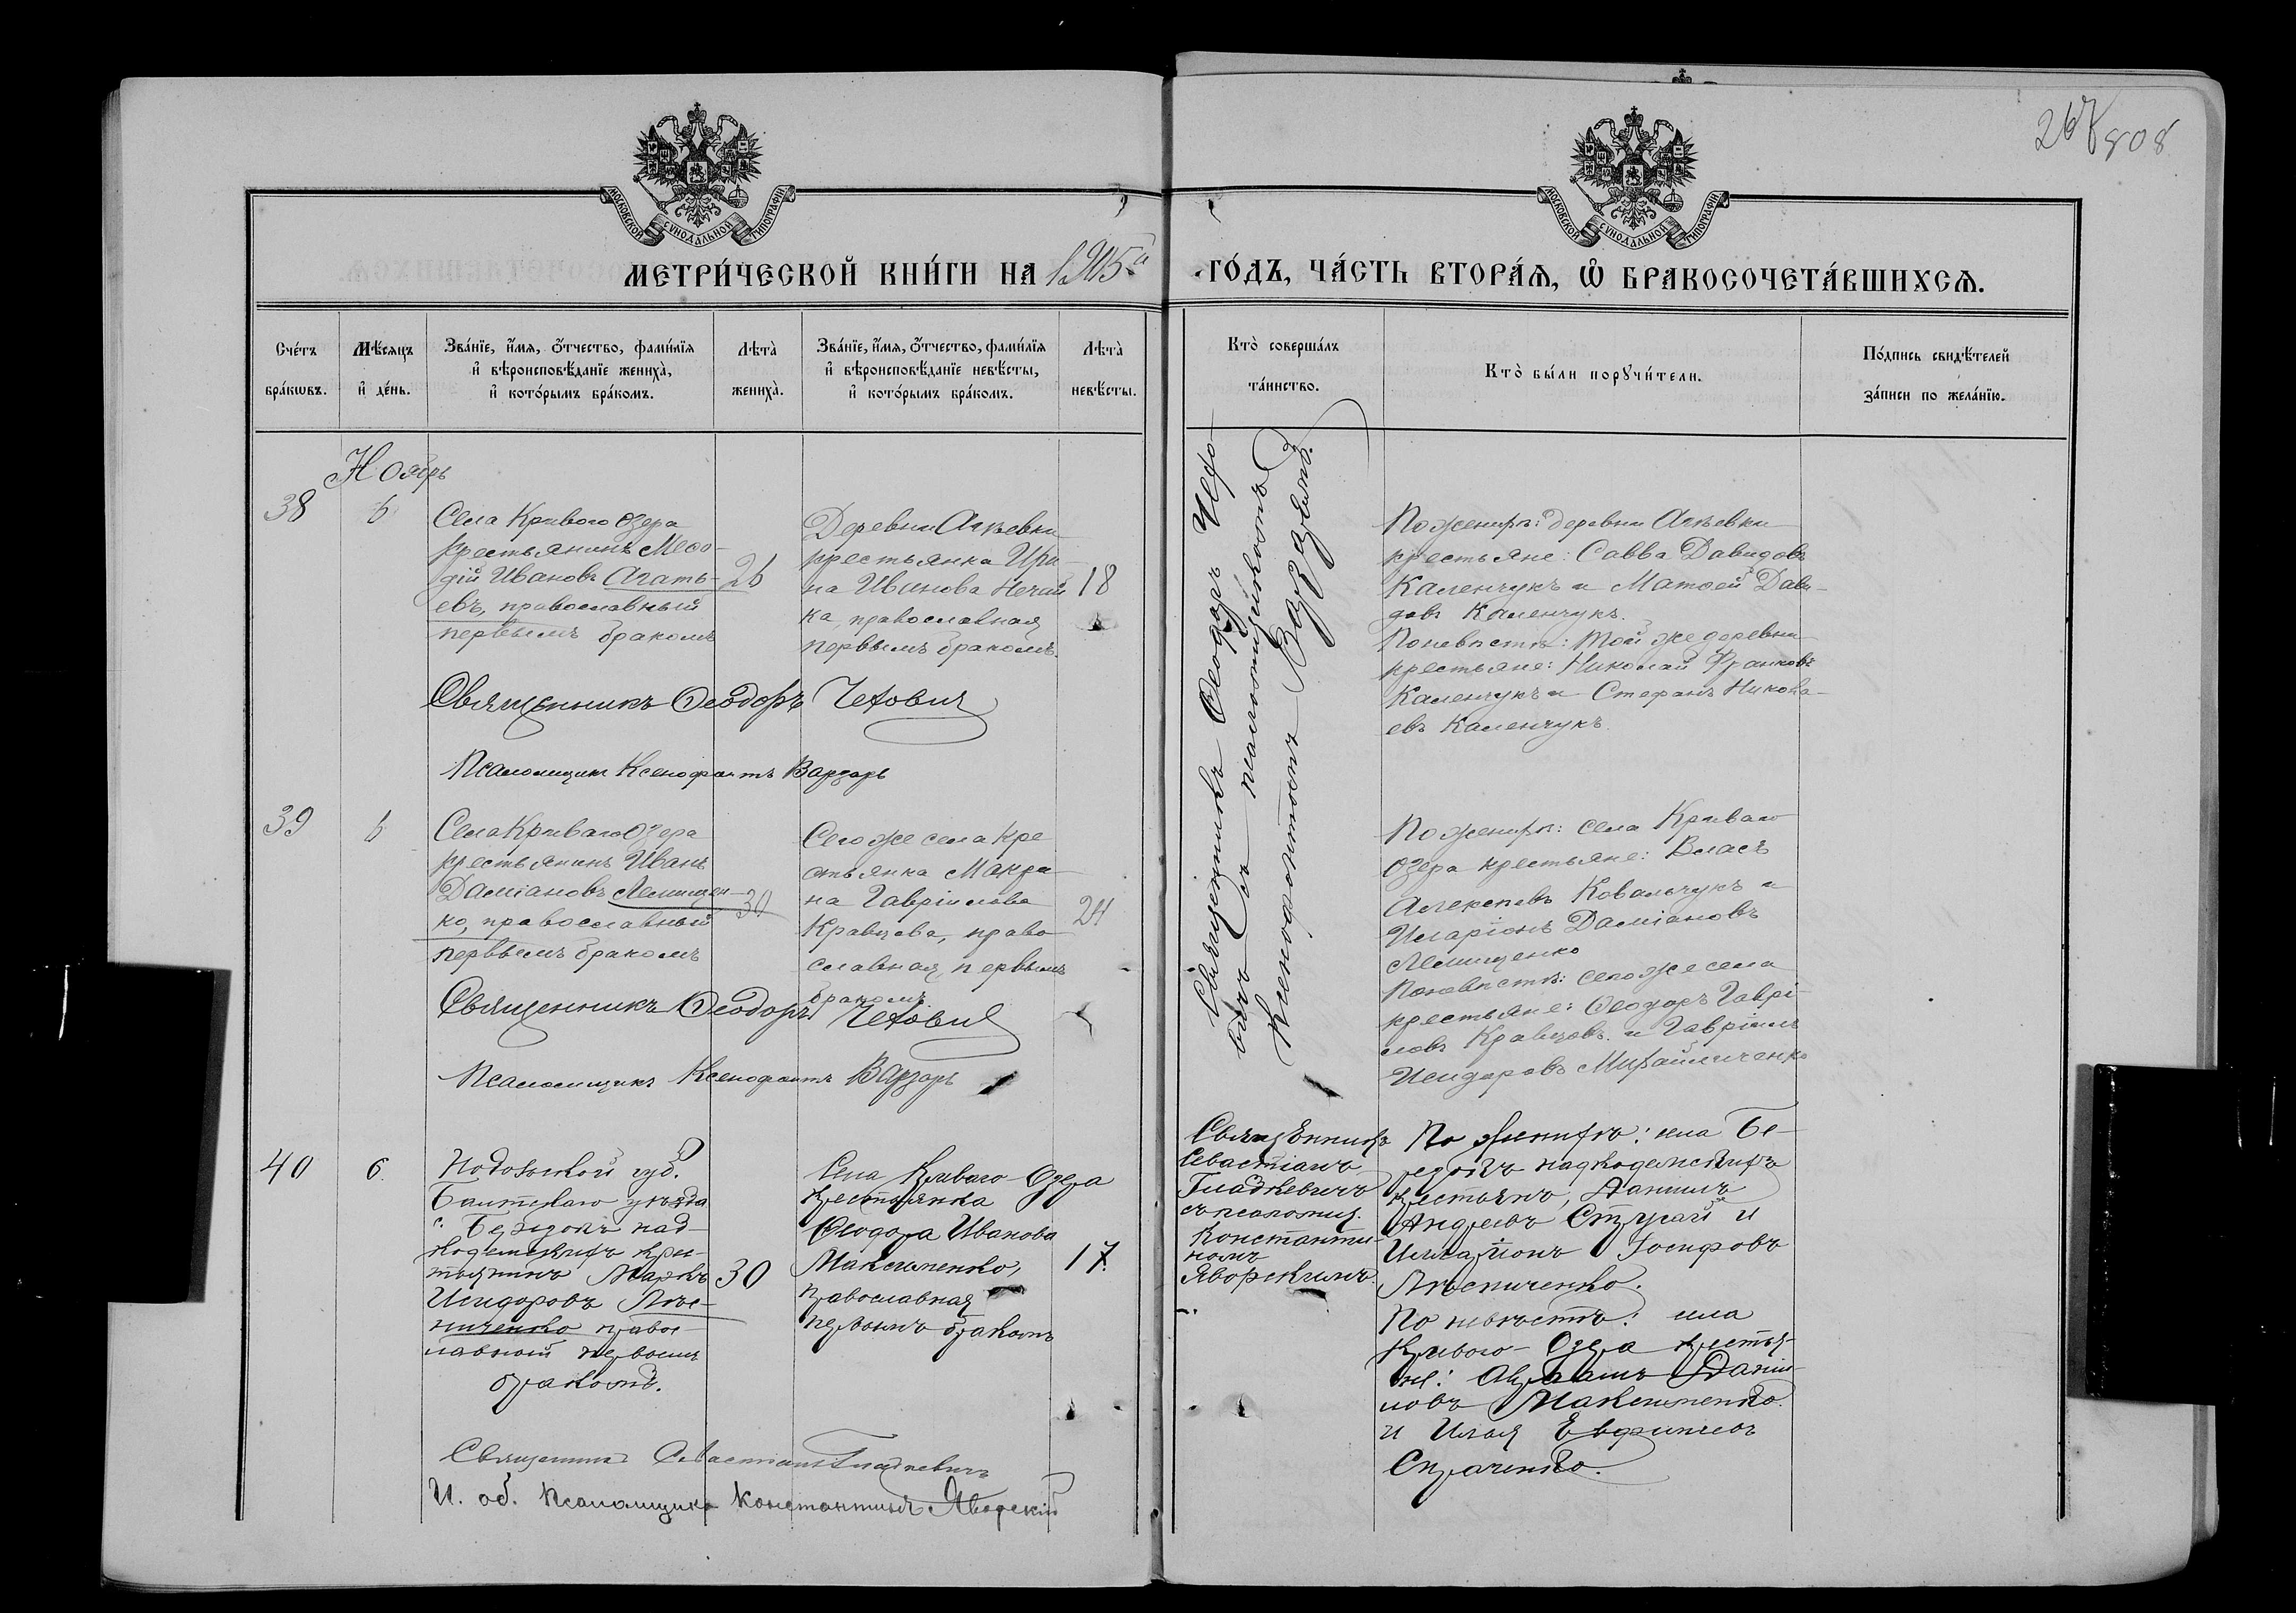 267 808
МОСКОВСКОЙ СѴНОДАЛЬНОЙ ТИПОГРАФІИ
МОСКОВСКОЙ СѴНОДАЛЬНОЙ ТИПОГРАФІИ
МЕТРИ́ЧЕСКОЙ КНИ́ГИ НА 1915й ГО́ДЪ, ЧА́СТЬ ВТОРА́Ѧ, Ѽ БРАКОСОЧЕТА́ВШИХСѦ.
Сче́тъ бра́кѡвъ.
Мѣ́сяцъ и҆ де́нь.
Зва́нїе, и҆́мя, ѻ҆́тчество, фами́лїя
и҆ вѣроисповѣ́данїе жениха̀,
и҆ кото́рымъ бра́комъ.
Лѣта̀ жениха̀.
Зва́нїе, и҆́мя, ѻ҆́тчество, фами́лїя
и҆ вѣроисповѣ́данїе невѣ́сты,
и҆ кото́рымъ бра́комъ.
Лѣта̀ невѣ́сты.
Кто̀ соверша́лъ
та́инство.
Кто̀ бы́ли порꙋчи́тели.
По́дпись свидѣ́телей
за́писи по жела́нїю.
Ноябрь
38
6
Села Криваго Озера
крестьянинъ Меѳо-
дій Ивановъ Агать-
евъ, православный
первымъ бракомъ
26
Деревни Агѣевки
крестьянка Ири-
на Иванова Нечай
ка, православная
первымъ бракомъ.
18
Священникъ Ѳеодоръ Чехо-
вичъ съ псаломщикомъ
Ксенофонтомъ Варзаремъ.
По женихѣ: деревни Агѣевки
крестьяне: Савва Давидовъ
Каленчукъ и Матѳей Дави-
довъ Каленчукъ.
По невѣстѣ: той же деревни
крестьяне: Николай Франковъ
Каленчукъ и Стефанъ Никола-
евъ Каленчукъ
Священникъ Ѳеодоръ Чехович
Псаломщикъ Ксенофонтъ Варзарь
39
6
Села Криваго Озера
крестьянинъ Иванъ
Даміановъ Лемищен-
ко, православный
первымъ бракомъ
30
Сего же села кре
стьянка Макри-
на Гавріилова
Кравцова, право-
славная, первымъ
бракомъ.
24
По женихѣ: села Криваго
Озера крестьяне: Власъ
Алексѣевъ Ковальчукъ и
Иларіонъ Даміановъ
Лемищенко
По невѣстѣ: сего же села
крестьяне: Ѳеодоръ Гаврі-
ловъ Кравцовъ и Гавріилъ
Исидоровъ Михайличенко
Священникъ Ѳеодоръ Чехович
Псаломщикъ Ксенофонтъ Варзарь
40
6.
Подольской губ.
Балтскаго уѣзда
с. Березокъ над-
кодемскихъ крес-
тьянинъ Маркъ
Исидоровъ Лѣс-
ниченко правос-
лавный первымъ
бракомъ.
30
Села Криваго-Озера
крестьянка
Ѳеодора Иванова
Максименко,
православная
первымъ бракомъ
17.
Священникъ
Севастіанъ
Гладкевичъ
съ псаломщ.
Константи-
номъ
Яворскимъ.
По женихѣ: села Бе-
резокъ надкодемскихъ
крестьянъ, Даніилъ
Андреевъ
и
Илларіонъ Іосифовъ
Лѣсниченко.
По невѣстѣ: села
Криваго-Озера крестья-
не: Авраамъ Даніи-
ловъ Максименко.
и Илья
Священникъ Севастіанъ Гладкевичъ
И. об. Псаломщика Константинъ Яворскій